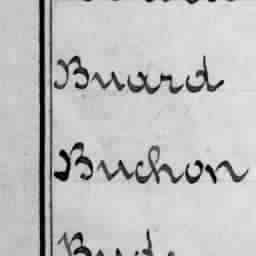 Buard
Buchon